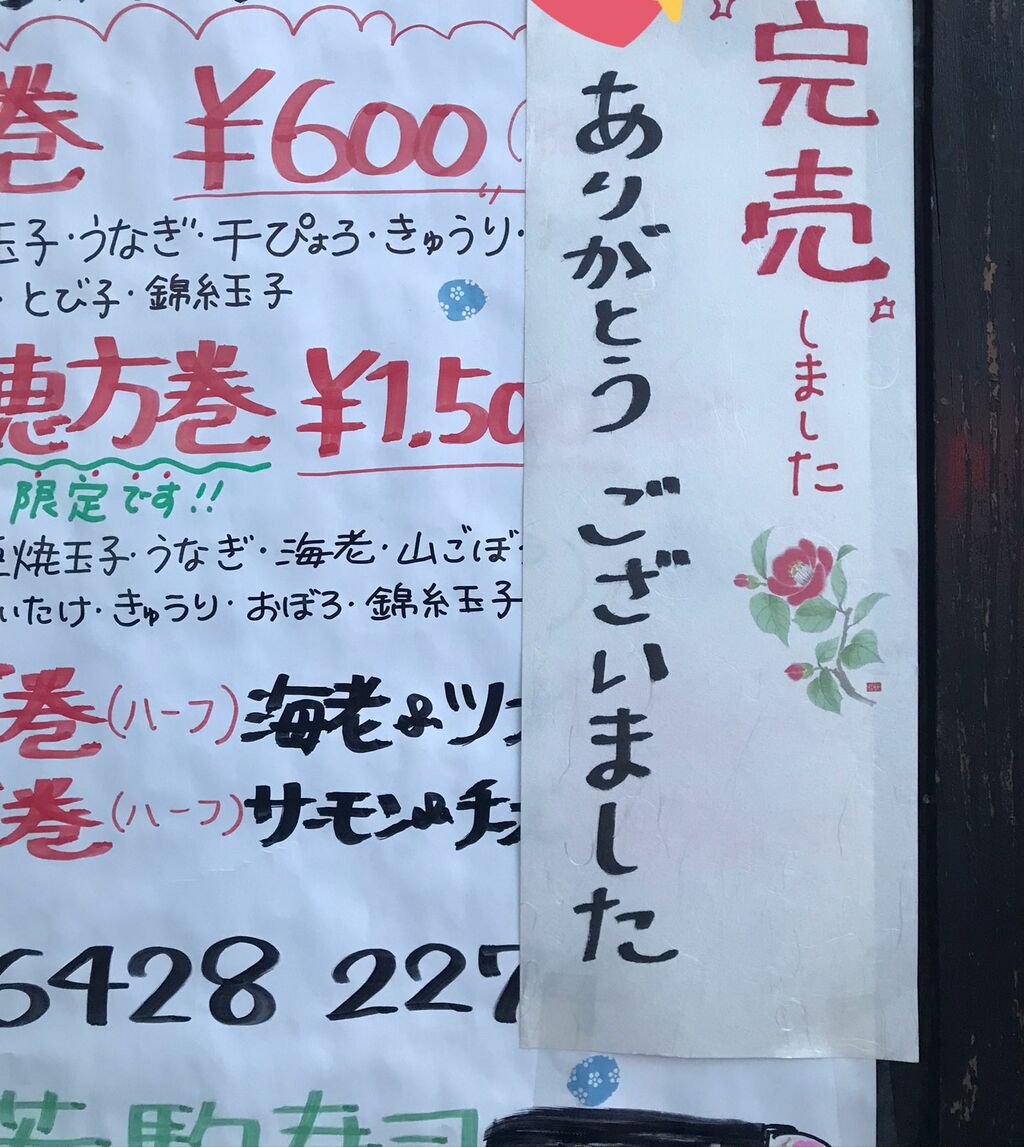 巻 ¥600
玉子・うなぎ・干ぴょう・きゅうり・
・とび子・錦糸玉子
恵方巻 ¥1.50
限定です!!
焼玉子・うなぎ・海老・山ごぼ
いたけ・きゅうり・おぼろ・錦糸玉子
巻(ハーフ)海老&ツ
巻(ハーフ)サーモン&チ
6428 227
若駒寿司
完売
しました
ありがとう ございました